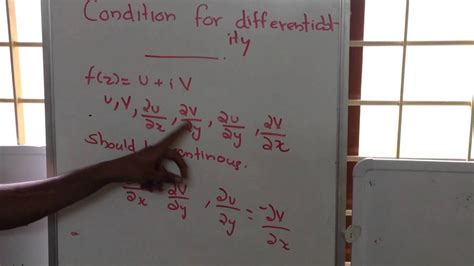 Condition for differentiabil-
ity
f(z) = U + i V
U, V, ∂U/∂x, ∂V/∂y, ∂U/∂y, ∂V/∂x
should continous.
∂x ∂V/∂y , ∂U/∂y = -∂V/∂x